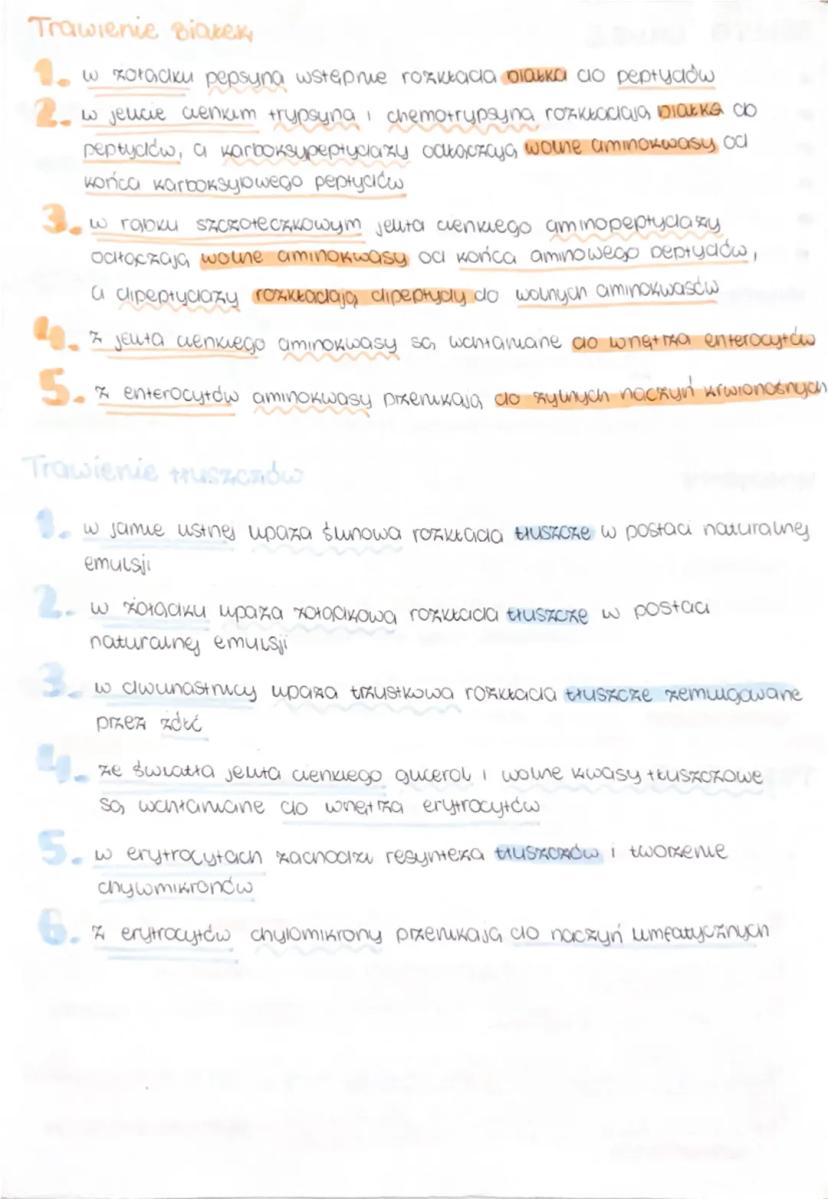 Trawienie białek
1. w żołądku pepsyna wstępnie rozkłada białka do peptydów
2. w jelicie cienkim trypsyna i chemotrypsyna rozkładają białka do
peptydów, a karboksypeptydazy odłączają wolne aminokwasy od
końca karboksylowego peptydów
3. w rąbku szczoteczkowym jelita cienkiego aminopeptydazy
odłączają wolne aminokwasy od końca aminowego peptydów,
a dipeptydazy rozkładają dipeptydy do wolnych aminokwasów
4. z jelita cienkiego aminokwasy są wchłaniane do wnętrza enterocytów
5. z enterocytów aminokwasy przenikają do żylnych naczyń krwionośnych
Trawienie tłuszczów
1. w jamie ustnej lipaza ślinowa rozkłada tłuszcze w postaci naturalnej
emulsji
2. w żołądku lipaza żołądkowa rozkłada tłuszcze w postaci
naturalnej emulsji
3. w dwunastnicy lipaza trzustkowa rozkłada tłuszcze zemulgowane
przez żółć
4. ze światła jelita cienkiego glicerol i wolne kwasy tłuszczowe
są wchłaniane do wnętrza erytrocytów
5. w erytrocytach zachodzi resynteza tłuszczów i tworzenie
chylomikronów
6. z erytrocytów chylomikrony przenikają do naczyń limfatycznych